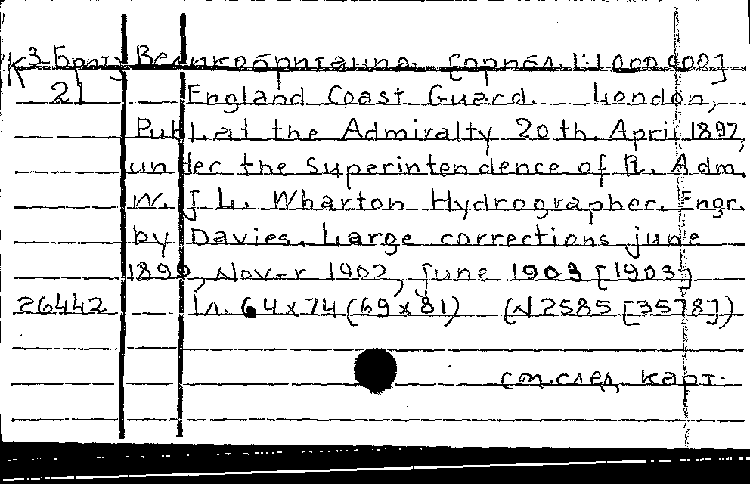 К 3-Брит Великобритания. [Орнбл. 1:1000000]
21 England Coast Guard. London,
Publ. at the Admiralty 20th. April 1897,
under the Superintendence of R. Adm.
W. J. L. Wharton Hydrographer. Engr.
by Davies. Large corrections june
1899, Nov-r 1902, june 1903 [1903]
26442 1л. 64x74 (69x81) (N2585 [3578])
см. след. карт.